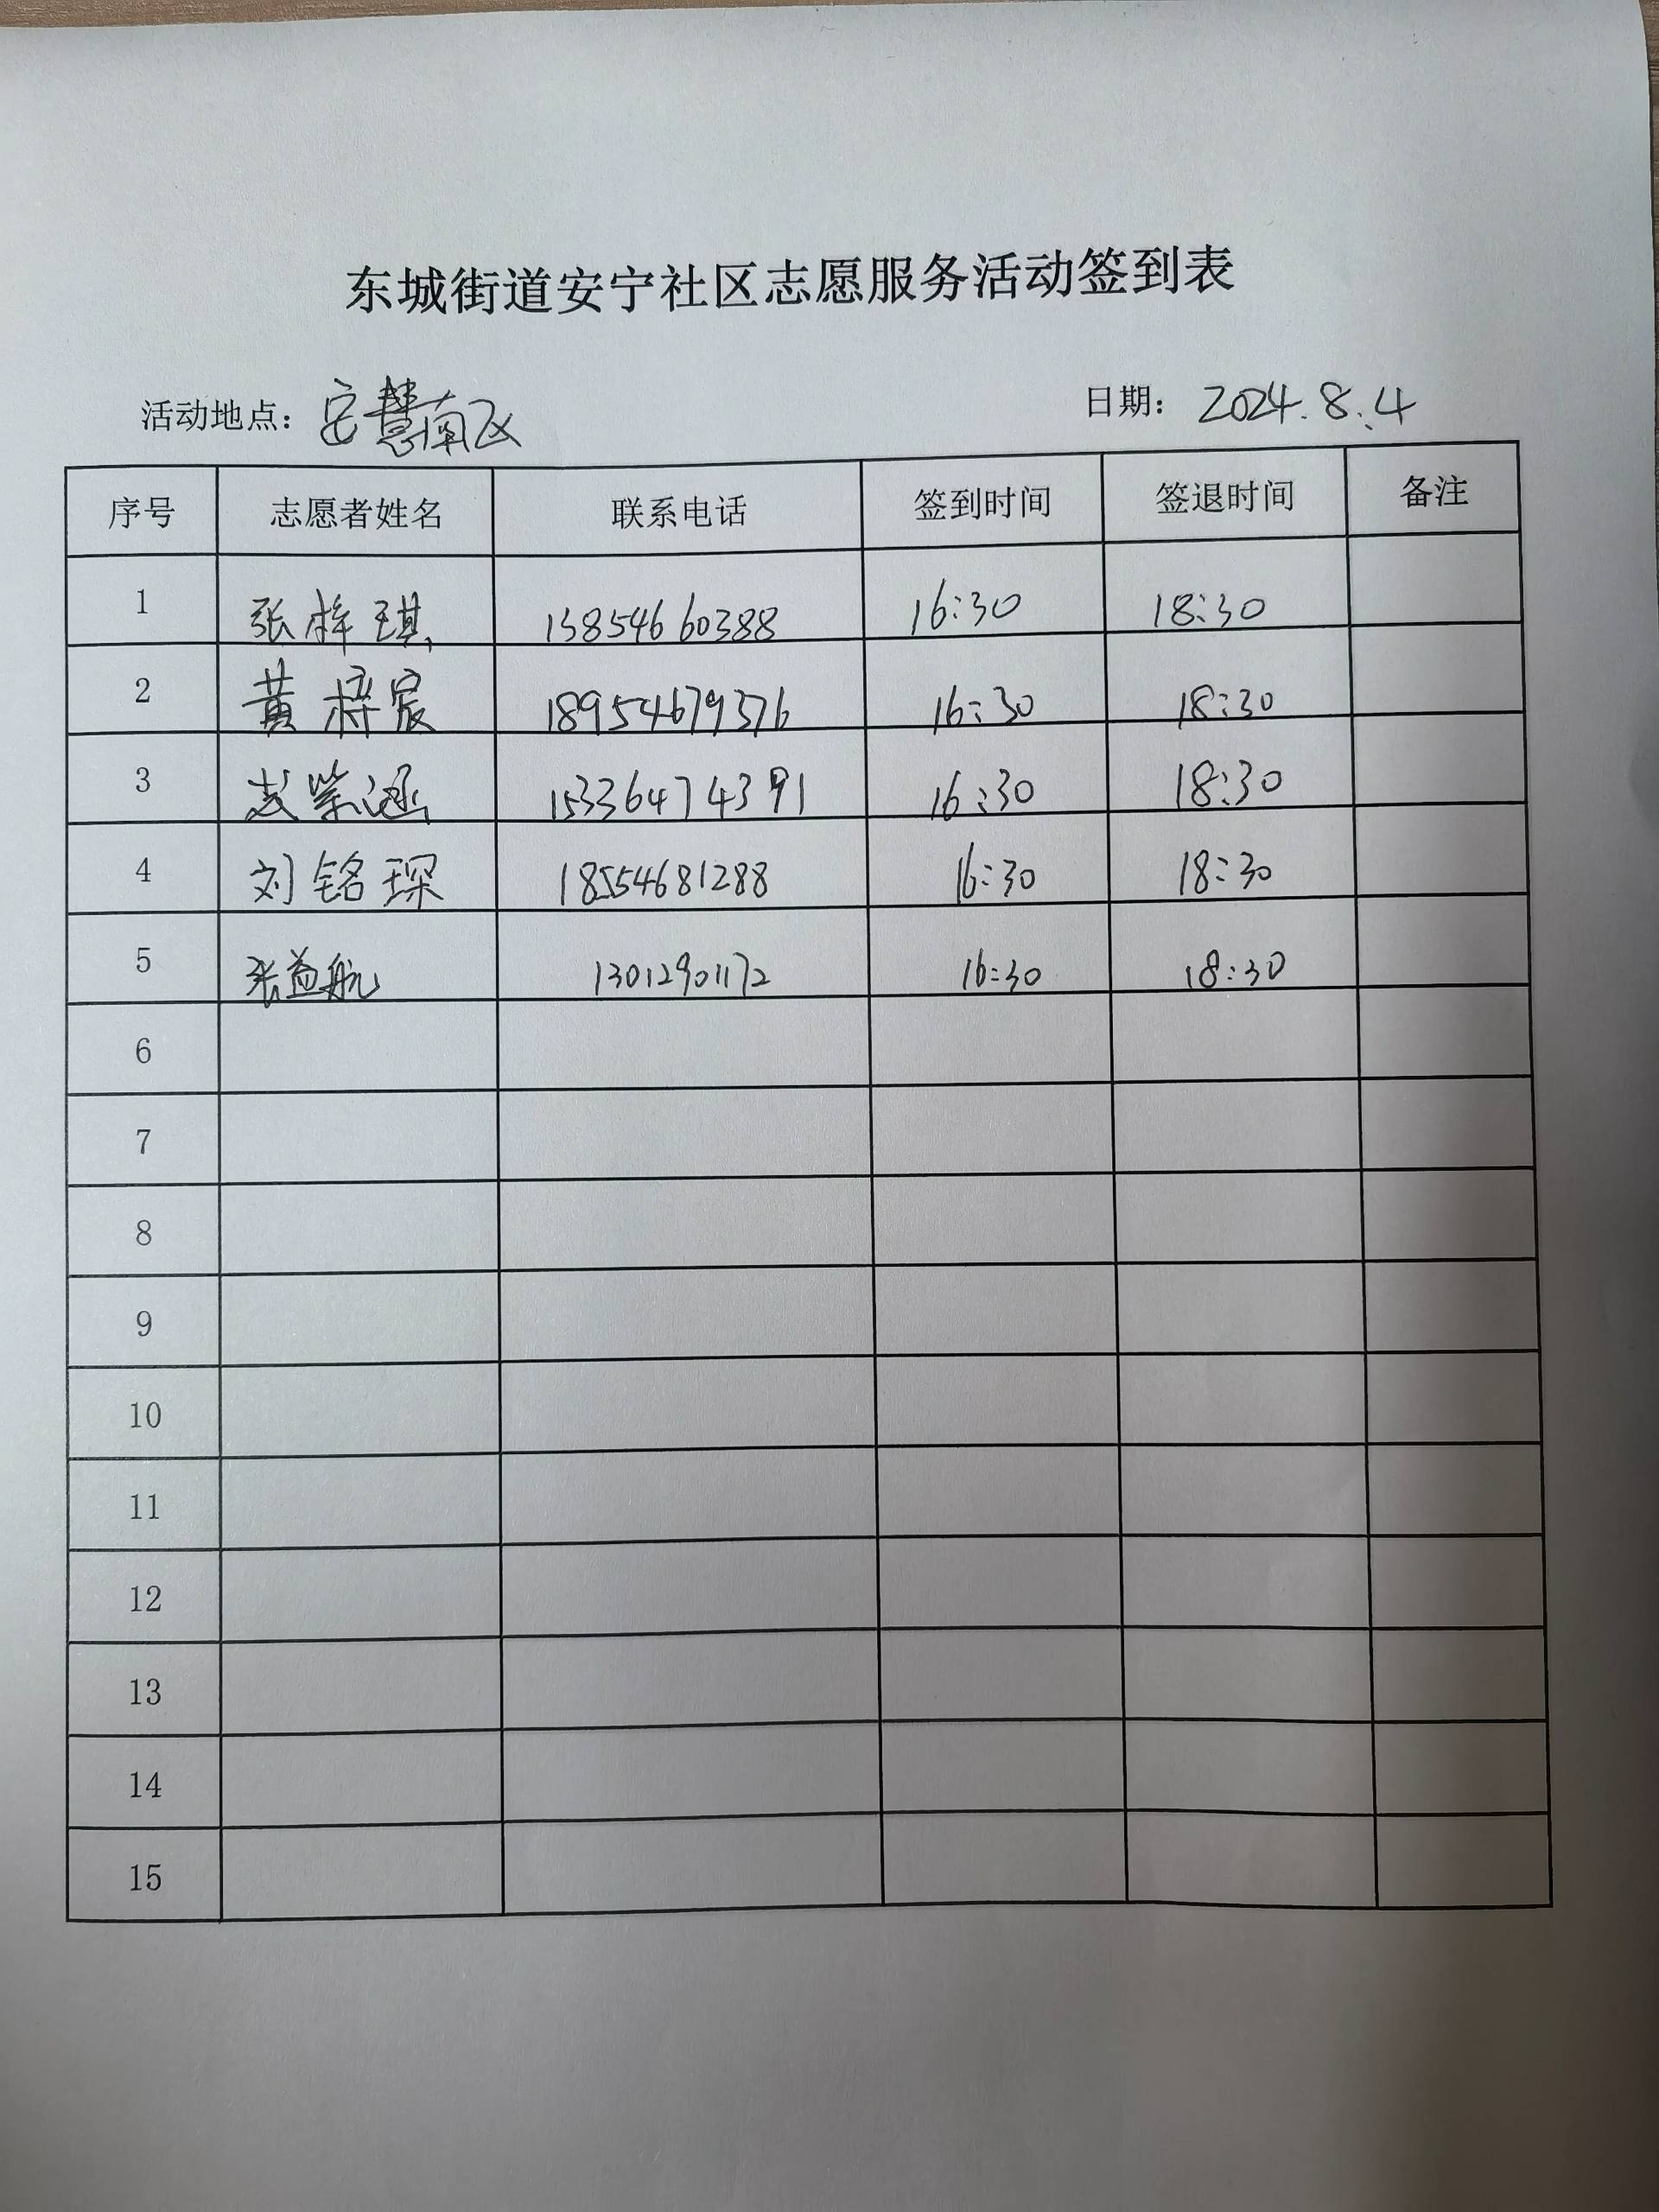 东城街道安宁社区志愿服务活动签到表
活动地点：安慧南区 日期：2024.8.4
序号 志愿者姓名 联系电话 签到时间 签退时间 备注
1 张梓琪 13854660388 16:30 18:30
2 黄梓宸 18954679376 16:30 18:30
3 赵紫涵 15336474391 16:30 18:30
4 刘铭琛 18554681288 16:30 18:30
5 张益航 13012901172 16:30 18:30
6
7
8
9
10
11
12
13
14
15